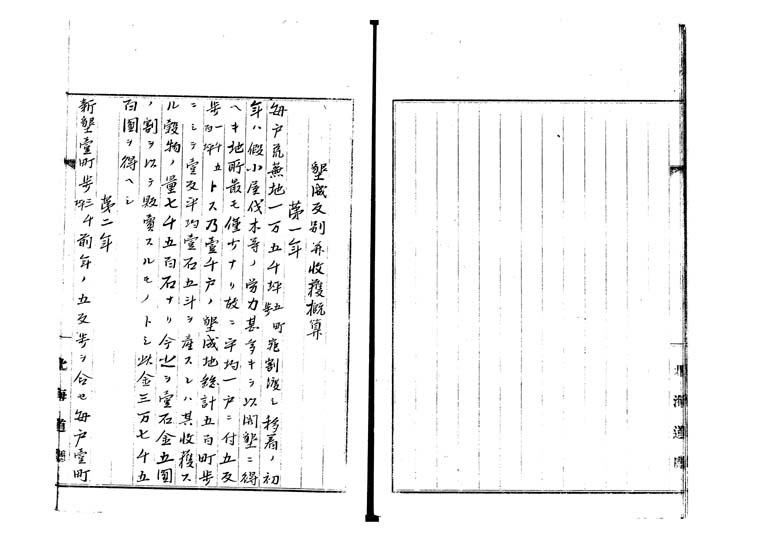 墾成反別并收穫概算
第一年
毎戸荒無地一万五千坪五町歩宛割渡シ移着ノ初
年ハ假小屋伐木等ノ労力甚多キヲ以開墾ニ得
ヘキ地所最モ僅少ナリ故ニ平均一戸ニ付五反
歩一千五百坪トス乃壹千戸ノ墾成地総計五百町歩
ニシテ壹反平均壹石五斗ヲ産スレハ其收獲ス
ル穀物ノ量七千五百石ナリ今之ヲ壹石金五圓
ノ割ヲ以テ販賣スルモノトシ此金三万七千五
百圓ヲ得ヘシ
第二年
新墾壹町歩三千坪前年ノ五反歩ヲ合セ毎戸壹町
北海道廳
北海道廳